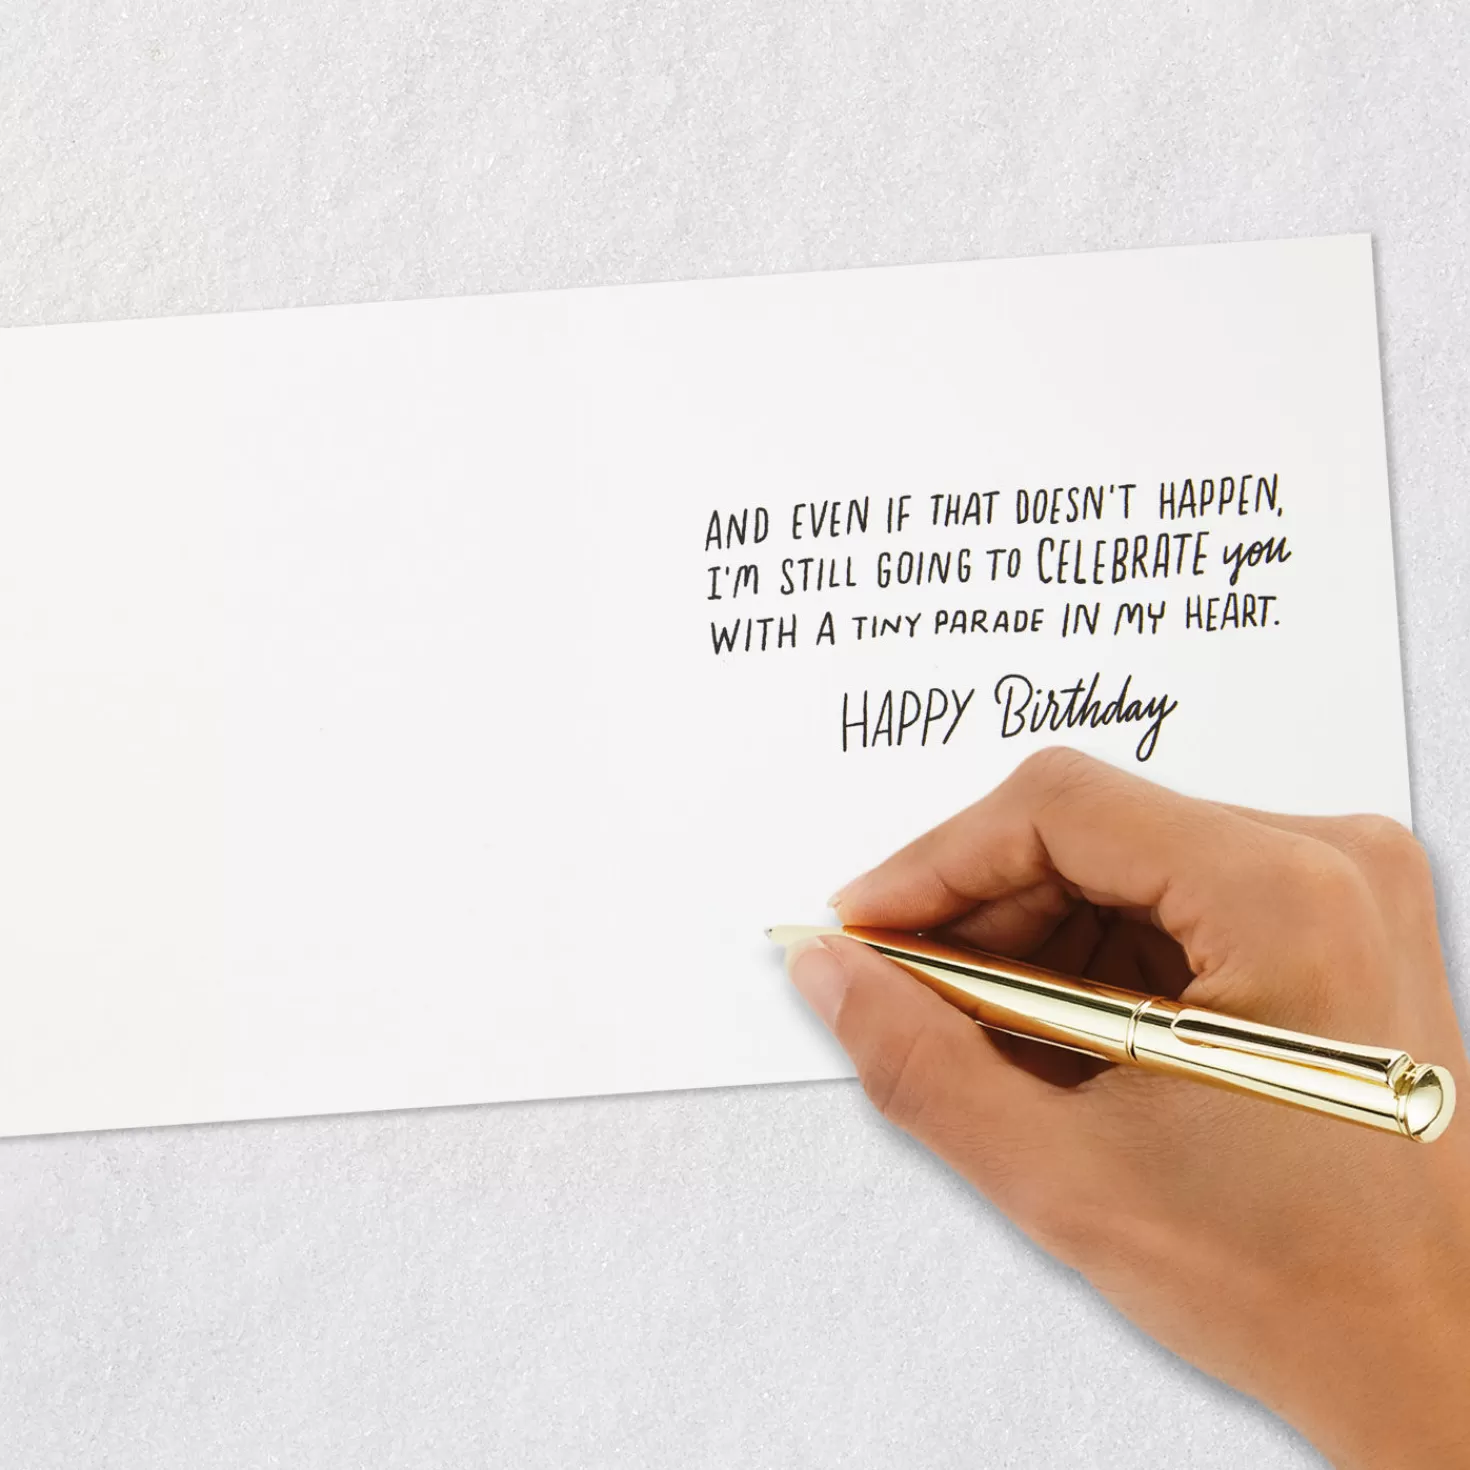 AND EVEN IF THAT DOESN'T HAPPEN,
I'M STILL GOING TO CELEBRATE you
WITH A TINY PARADE IN MY HEART.
HAPPY Birthday